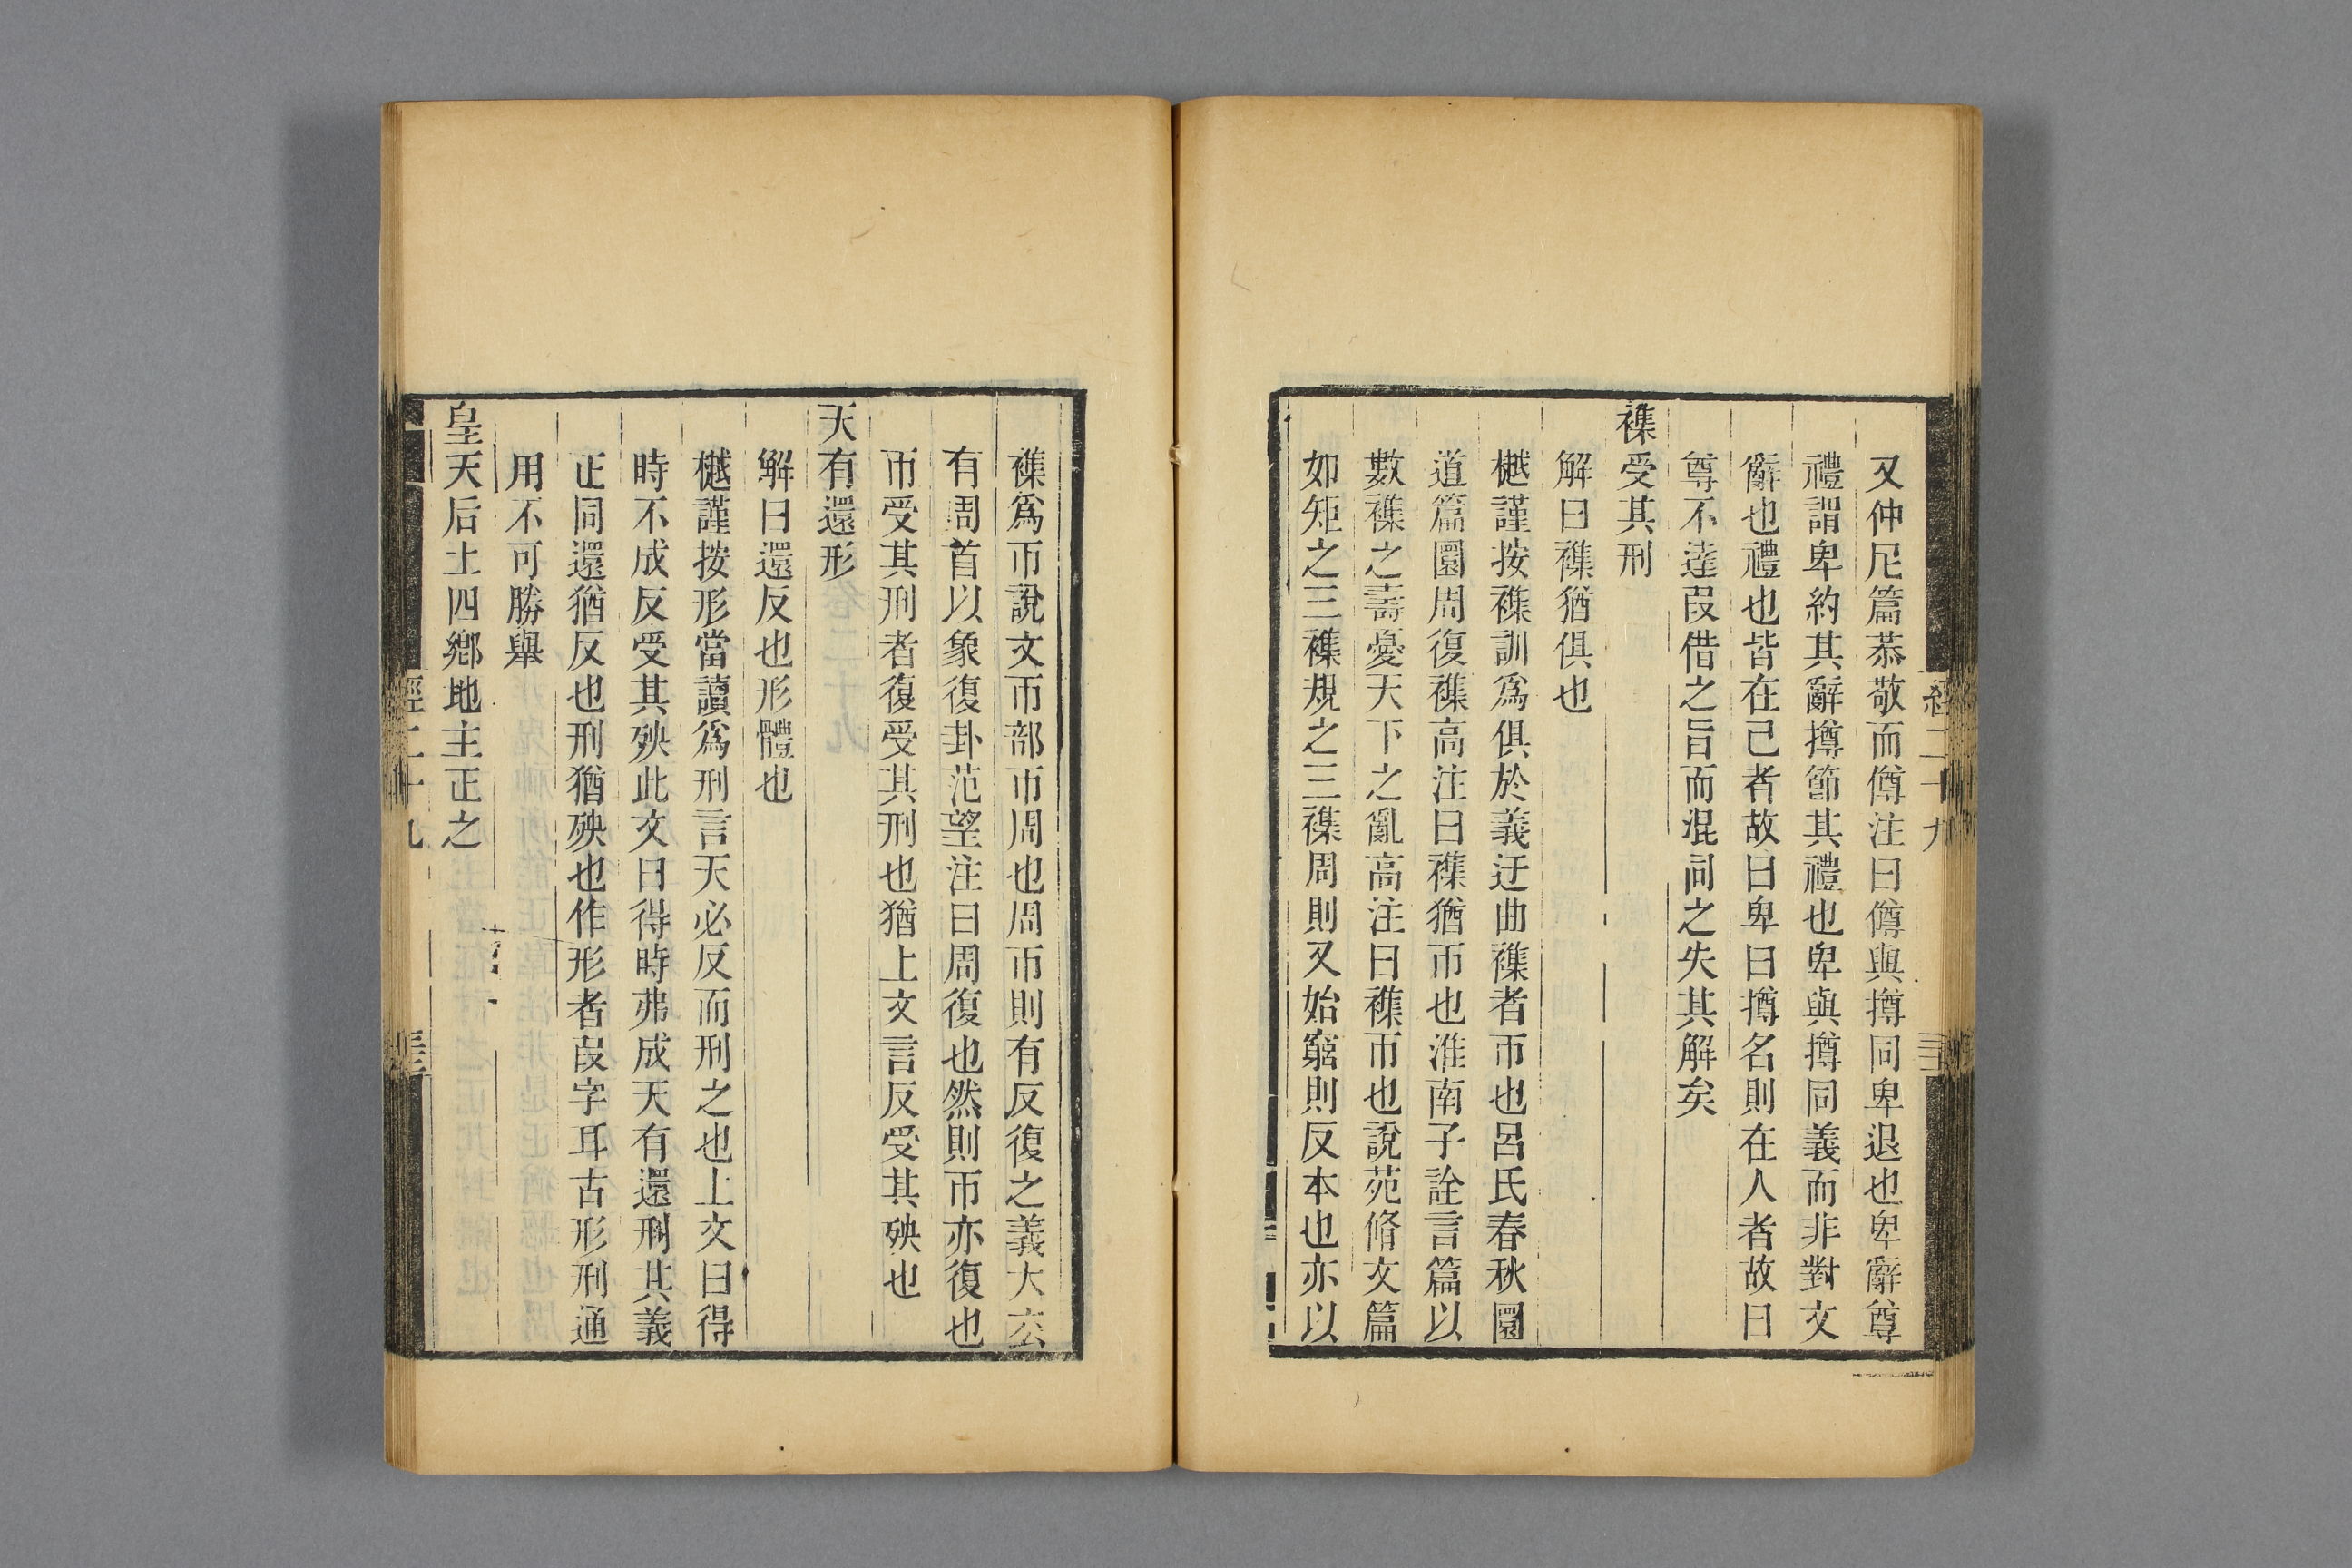 又仲尼篇恭敬而僔注曰僔與撙同卑退也卑辭尊
禮謂卑約其辭撙節其禮也卑與撙同義而非對文
辭也禮也皆在己者故曰卑曰撙名則在人者故曰
尊不達叚借之旨而混同之失其解矣
襍受其刑
解曰襍猶俱也
樾謹按襍訓爲俱於義迂曲襍者帀也呂氏春秋圜
道篇圜周復襍高注曰襍猶帀也淮南子詮言篇以
數襍之壽憂天下之亂高注曰襍帀也說苑脩文篇
如矩之三襍規之三襍周則又始窮則反本也亦以
襍爲帀說文帀部帀周也周帀則有反復之義大玄
有周首以象復卦范望注曰周復也然則帀亦復也
帀受其刑者復受其刑也猶上文言反受其殃也
天有還形
解曰還反也形體也
樾謹按形當讀爲刑言天必反而刑之也上文曰得
時不成反受其殃此文曰得時弗成天有還刑其義
正同還猶反也刑猶殃也作形者叚字耳古形刑通
用不可勝舉
皇天后土四鄉地主正之
經二十九